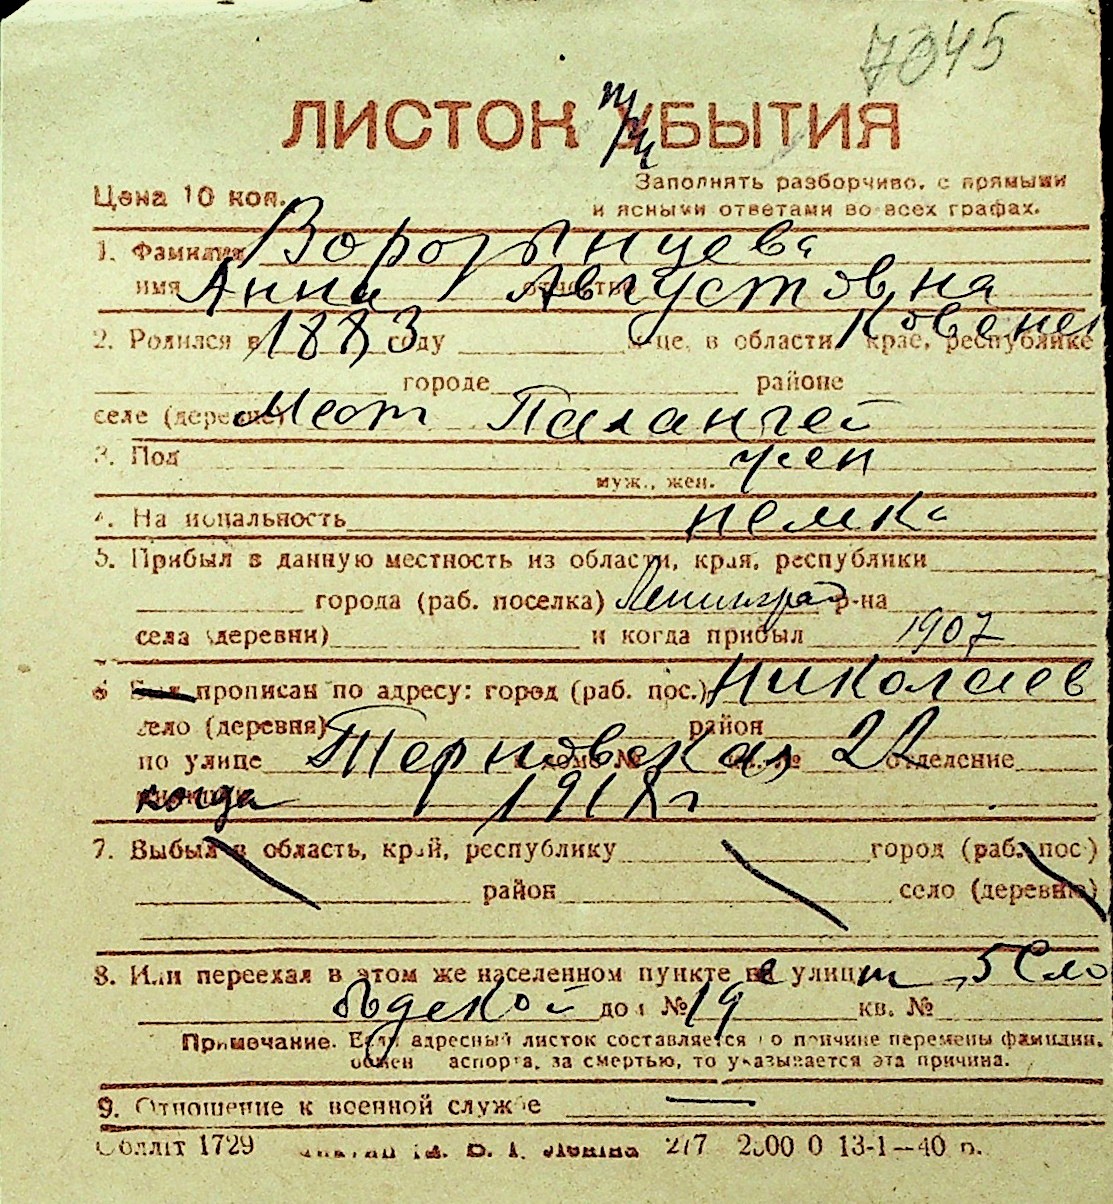 7045
ЛИСТОК УБЫТИЯ
Цена 10 коп.
Заполнять разборчиво, с прямыми
и ясными ответами во всех графах.
1. Фамилия Воротынцева
имя Анна отчество Августовна
2. Родился в 1883 году це, в области, крае, республике Ковенск
городе районе
селе (деревне) Мест Палангей
3. Пол жен
муж., жен.
4. Национальность немка
5. Прибыл в данную местность из области, края, республики
города (раб. поселка) Ленинград р-на
села (деревни) и когда прибыл 1907
6 Был прописан по адресу: город (раб. пос.) Николаев
село (деревня) район
по улице Терновская 22 дома № кв. № отделение
когда 1918 г
7. Выбыл в область, край, республику город (раб. пос)
район село (деревню)
8. Или переехал в этом же населенном пункте на улицу 5 Сло
бодской дом № 19 кв. №
Примечание. Если адресный листок составляется по причине перемены фамилии,
обмен паспорта, за смертью, то указывается эта причина.
9. Отношение к военной службе —
Обллiт 1729 277 2500 0 13-1—40 р.